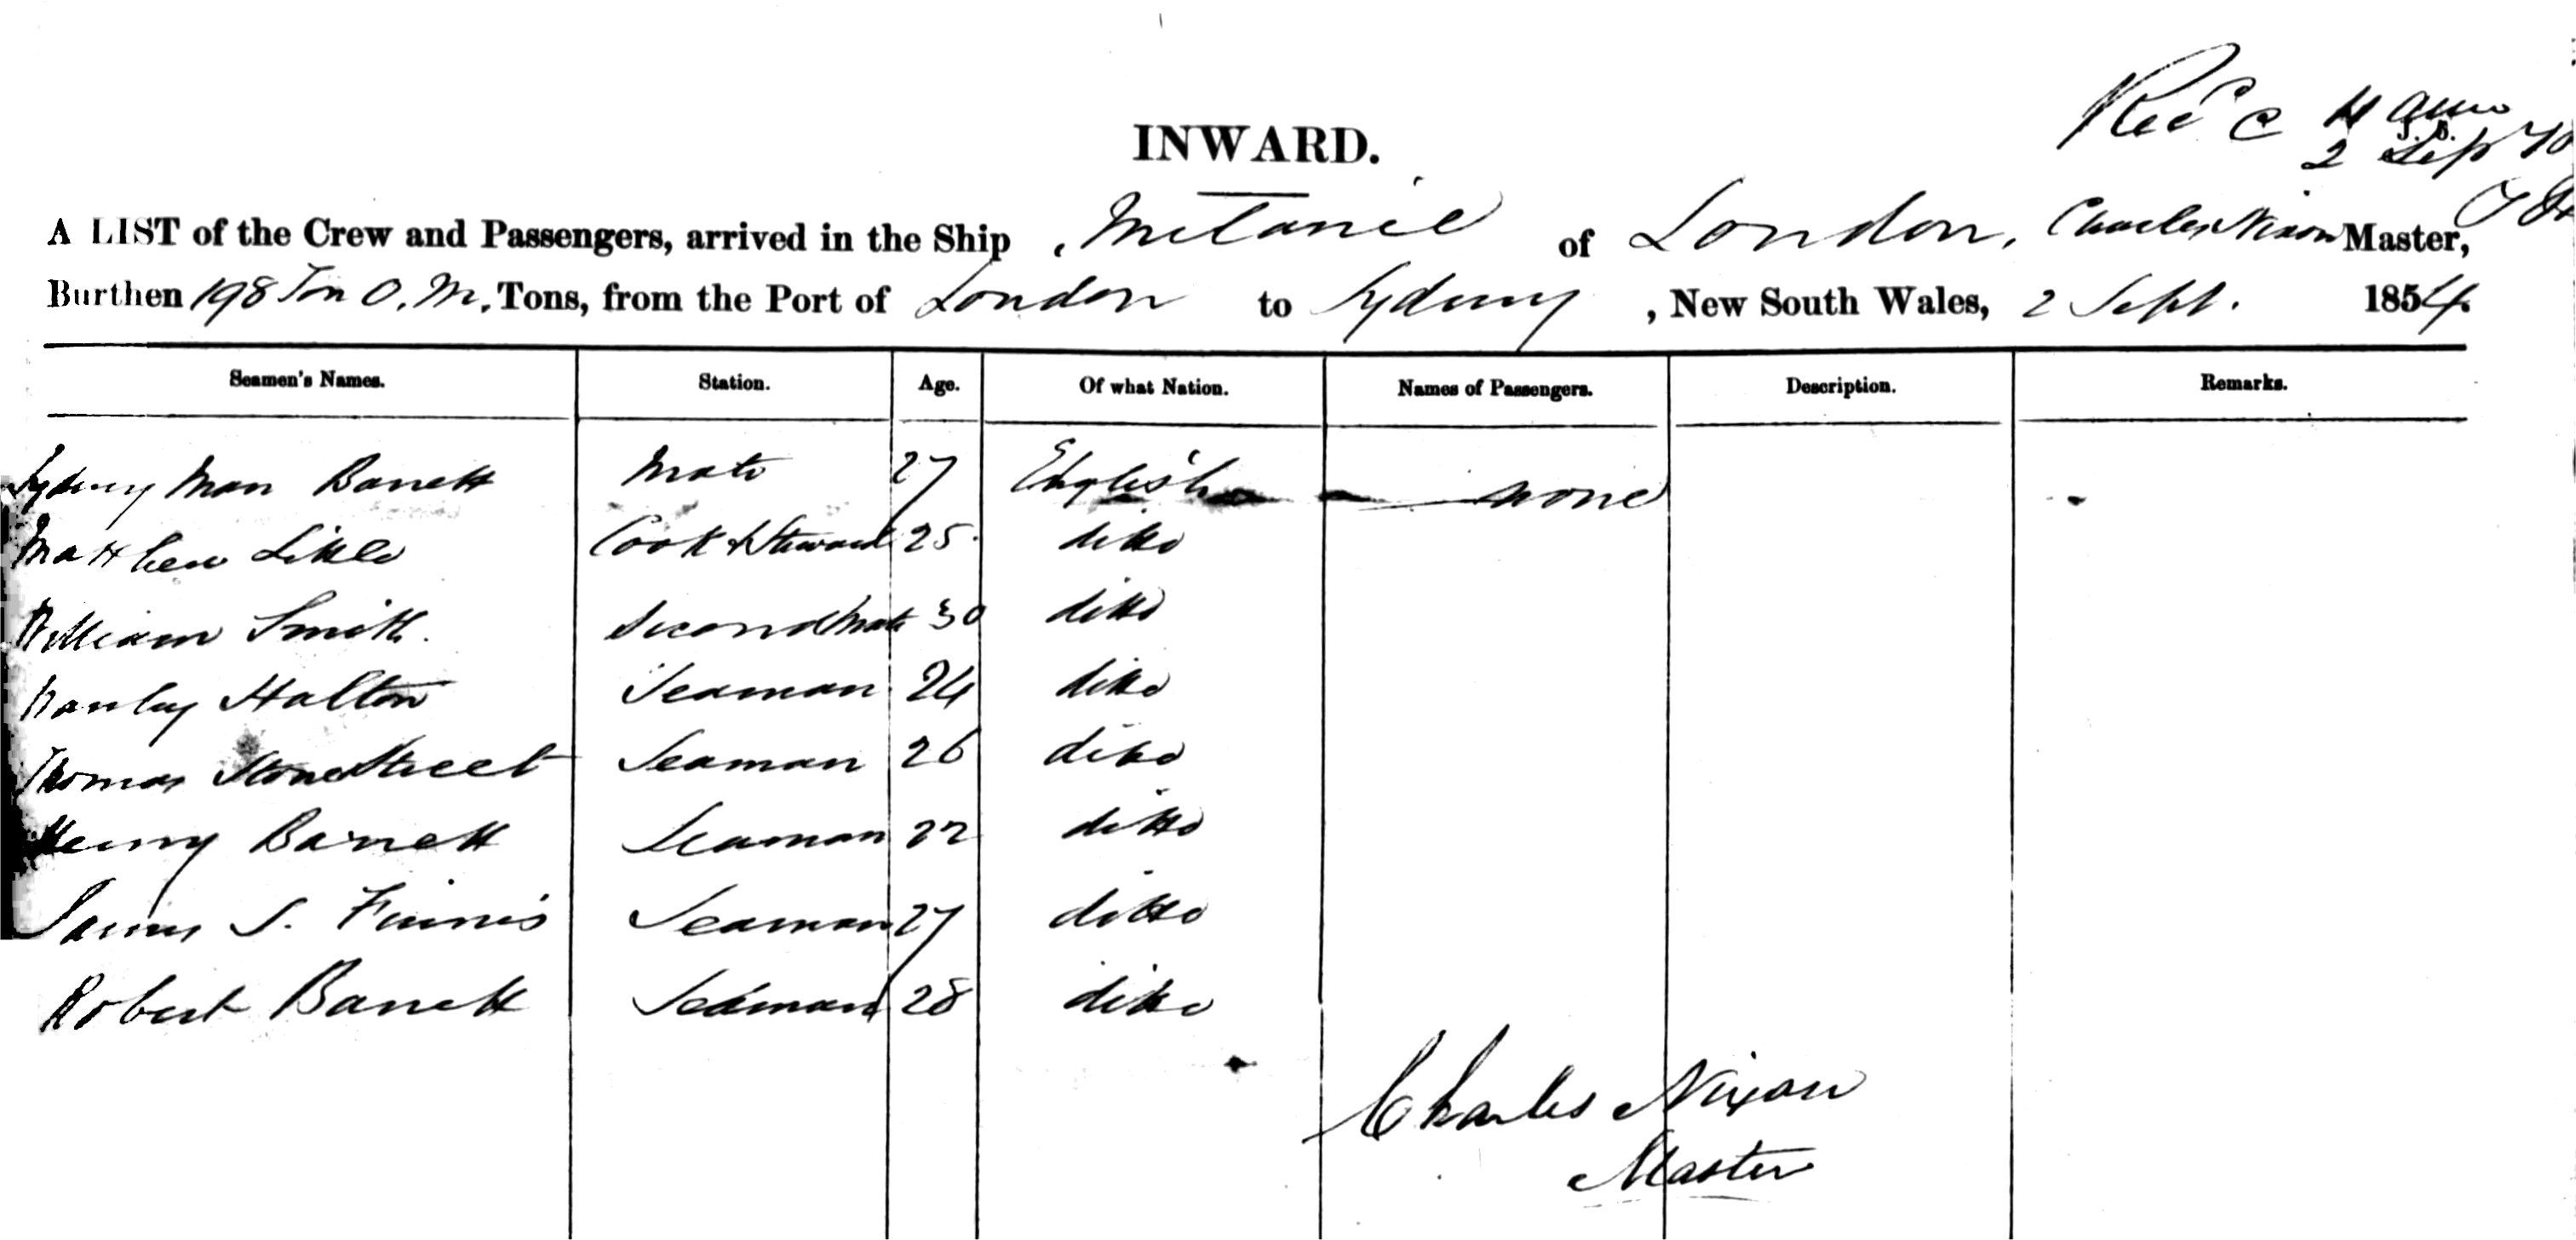 Rec'd 11 am
J.B.
2 Sep
INWARD.
A LIST of the Crew and Passengers, arrived in the Ship Melanie of London, Charles Nixon Master,
Burthen 198 Ton O.M. Tons, from the Port of London to Sydney, New South Wales, 2 Sept. 1854.
Seamen's Names. Station. Age. Of what Nation. Names of Passengers. Description. Remarks.
Sydney Man Barrett Mate 27 English none
Matthew Little Cook & Steward 25 ditto
William Smith Second Mate 30 ditto
Halton Seaman 24 ditto
Thomas Stonestreet Seaman 26 ditto
Henry Barrett Seaman 22 ditto
James S. Finnis Seaman 27 ditto
Robert Barrett Seaman 28 ditto
Charles Nixon
Master